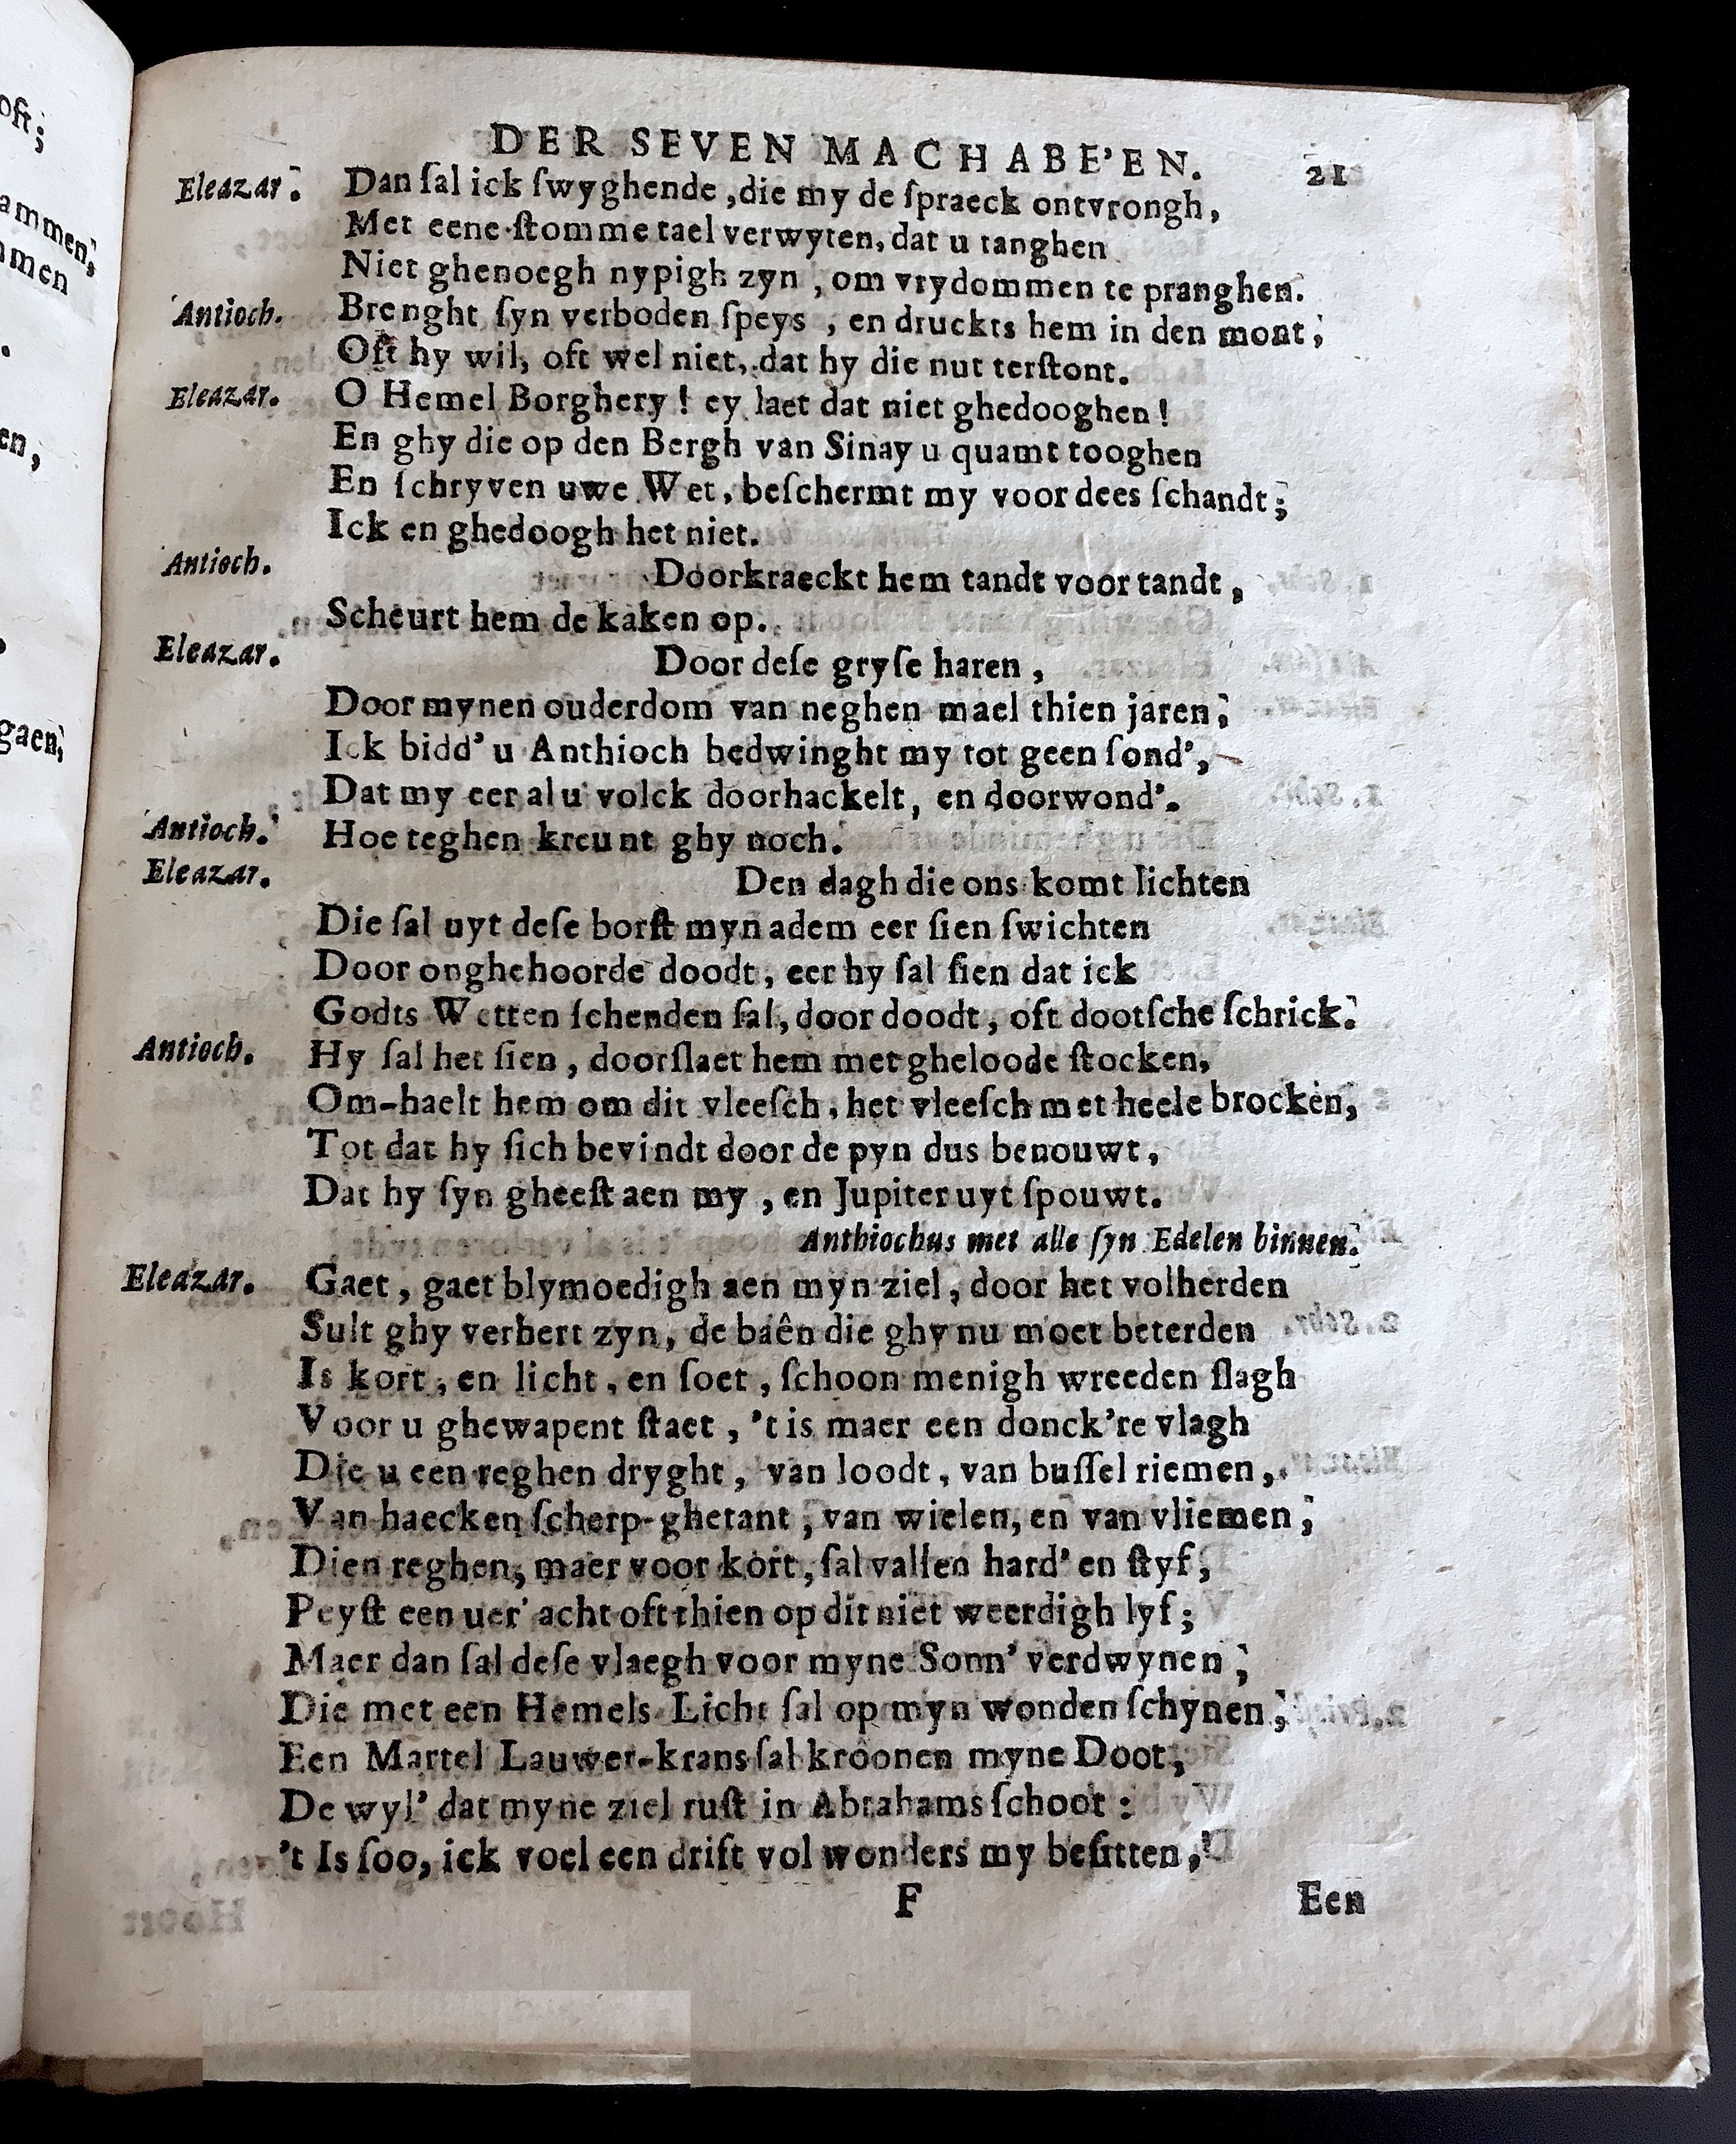 DER SEVEN MACHABE'EN. 21
Eleazar. Dan ſal ick ſwyghende, die my de ſpraeck ontvrongh,
Met eene ſtomme tael verwyten, dat u tanghen
Niet ghenoegh nypigh zyn, om vrydommen te pranghen.
Antioch. Brenght ſyn verboden ſpeys, en druckts hem in den mont,
Oft hy wil, oft wel niet, dat hy die nut terſtont.
Eleazar. O Hemel Borghery! ey laet dat niet ghedooghen!
En ghy die op den Bergh van Sinay u quamt tooghen
En ſchryven uwe Wet, beſchermt my voor dees ſchandt;
Ick en ghedoogh het niet.
Antioch. Doorkraeckt hem tandt voor tandt,
Scheurt hem de kaken op.
Eleazar. Door deſe gryſe haren,
Door mynen ouderdom van neghen mael thien jaren,
Ick bidd' u Anthioch bedwinght my tot geen ſond',
Dat my eer al u volck doorhackelt, en doorwond'.
Antioch. Hoe teghen kreunt ghy noch.
Eleazar. Den dagh die ons komt lichten
Die ſal uyt deſe borſt myn adem eer ſien ſwichten
Door onghehoorde doodt, eer hy ſal ſien dat ick
Godts Wetten ſchenden ſal, door doodt, oft dootſche ſchrick.
Antioch. Hy ſal het ſien, doorſlaet hem met gheloode ſtocken,
Om-haelt hem om dit vleeſch, het vleeſch met heele brocken,
Tot dat hy ſich bevindt door de pyn dus benouwt,
Dat hy ſyn gheeſt aen my, en Jupiter uyt ſpouwt.
Anthiochus met alle ſyn Edelen binnen.
Eleazar. Gaet, gaet blymoedigh aen myn ziel, door het volherden
Sult ghy verhert zyn, de baên die ghy nu moet beterden
Is kort, en licht, en ſoet, ſchoon menigh wreeden ſlagh
Voor u ghewapent ſtaet, 't is maer een donck're vlagh
Die u een reghen dryght, van loodt, van buſſel riemen,
Van haecken ſcherp-ghetant, van wielen, en van vliemen,
Dien reghen, maer voor kort, ſal vallen hard' en ſtyf,
Peyſt een uer' acht oft thien op dit niet weerdigh lyf;
Maer dan ſal deſe vlaegh voor myne Sonn' verdwynen,
Die met een Hemels Licht ſal op myn wonden ſchynen,
Een Martel Lauwer-krans ſal kroonen myne Doot,
De wyl' dat myne ziel ruſt in Abrahams ſchoot:
't Is ſoo, ick voel een drift vol wonders my beſitten,
F Een
oft;
ammen,
mmen
en,
gaen,